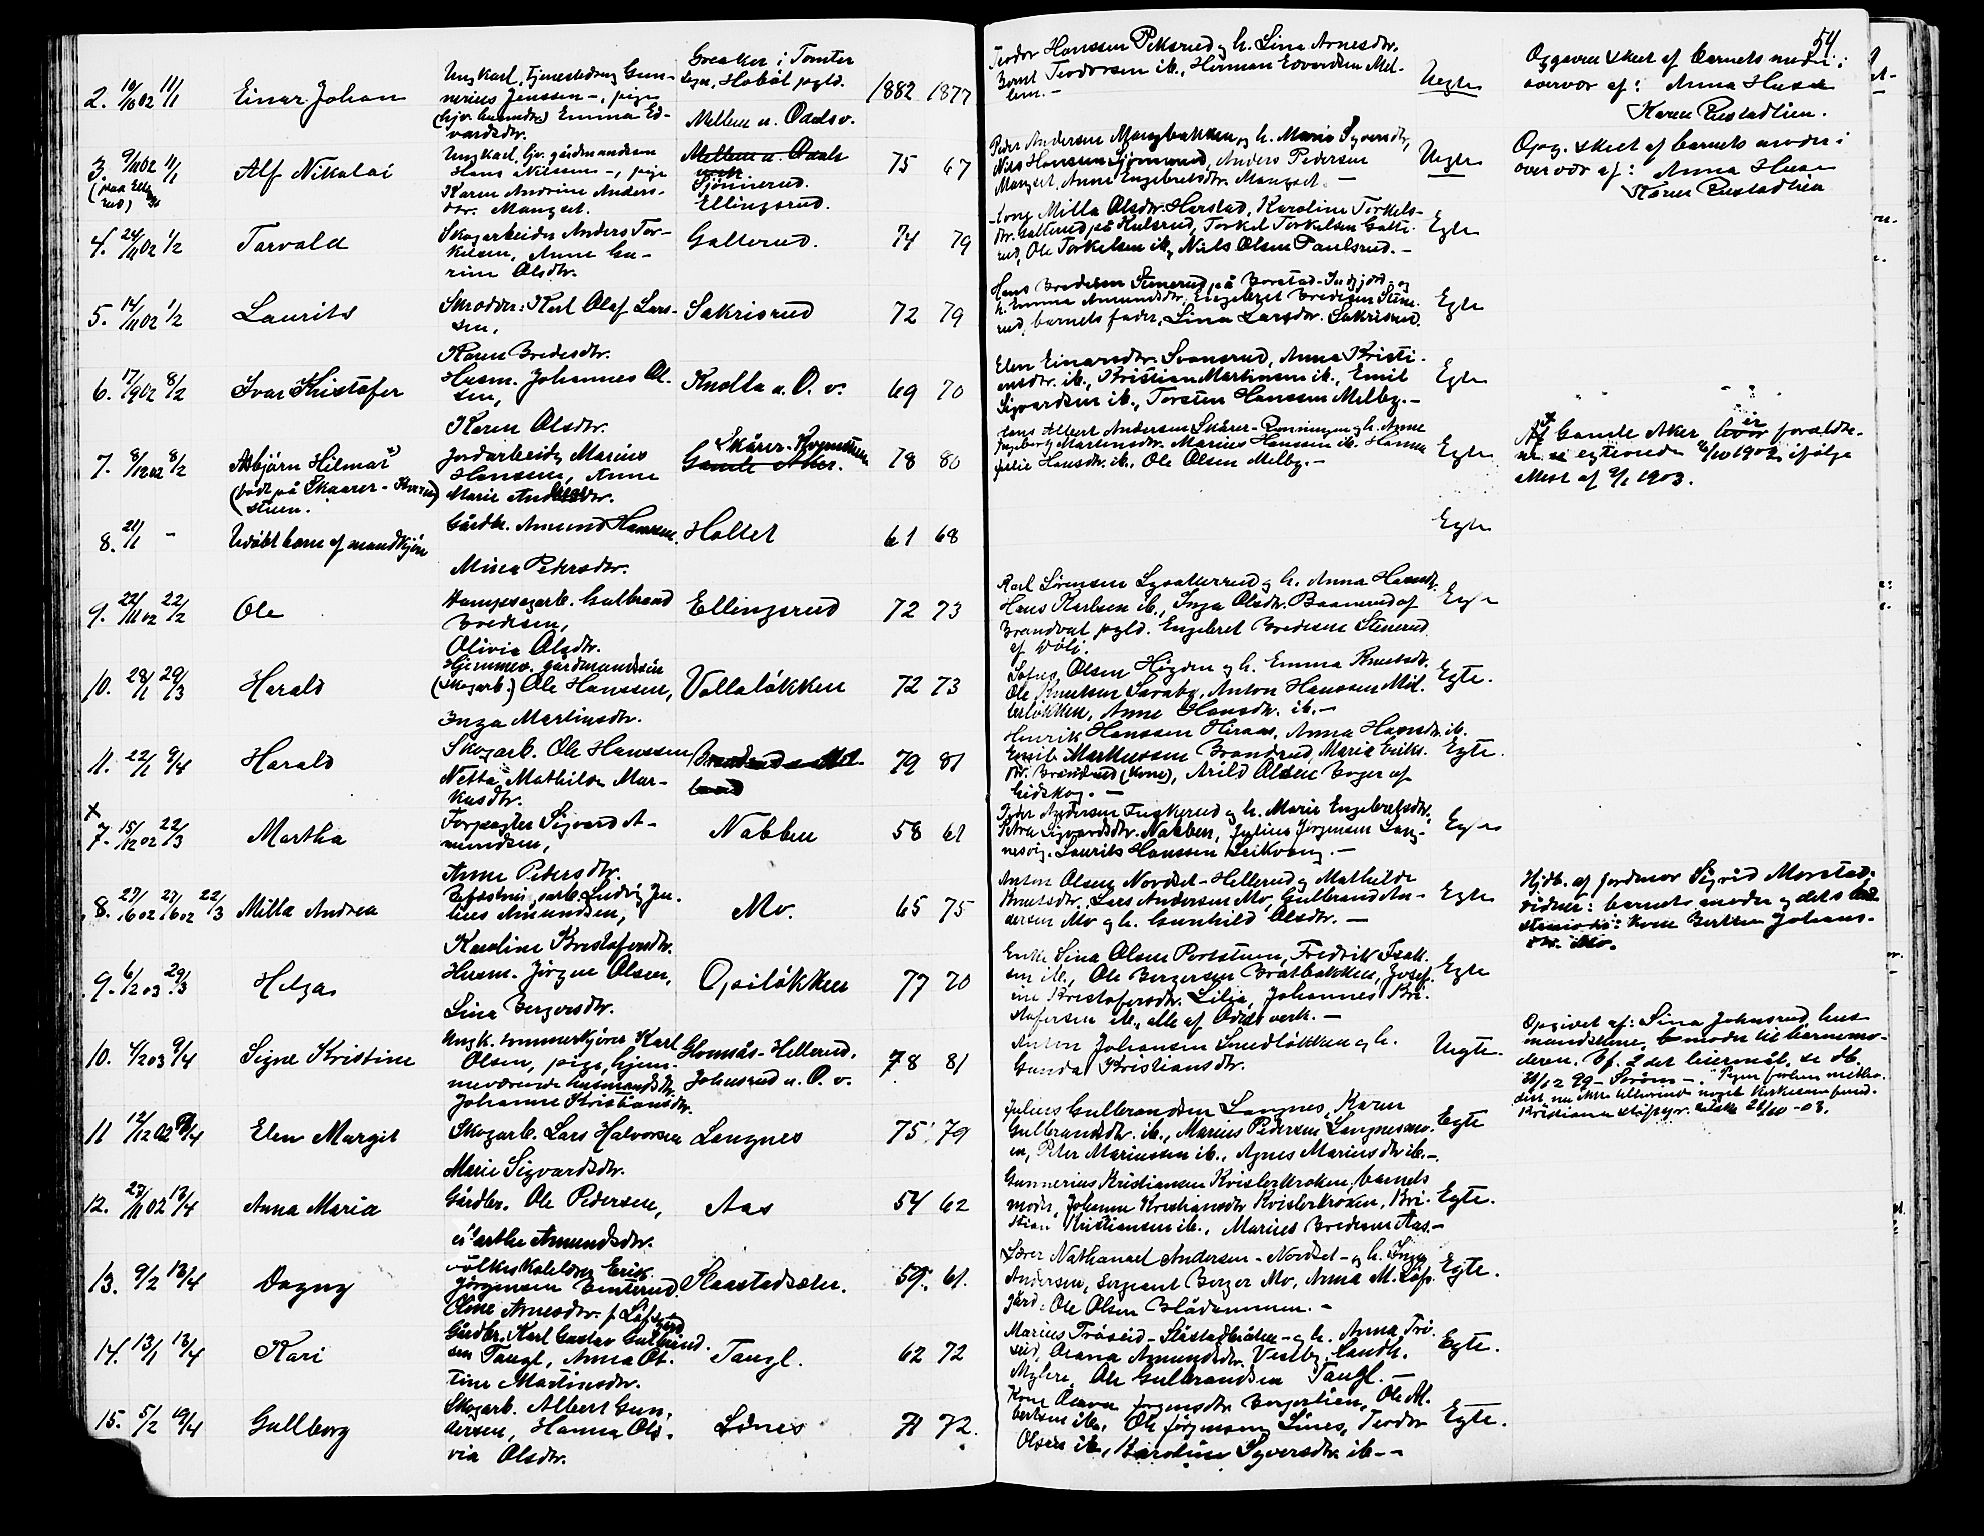 54.
2. 19/10 02 11/1 Einar Johan
Ungkarl, tjenestedreng Gun-
nerius Jenssen -, pige
(hjv. husmdtr.) Emma Ed-
vardsdtr.
Greaker i Tomter
sogn, Hobøl pgld.
Mellem u. Odals v.
1882 1877
Teodor Hanssen Peksrud og h. Lina Arnesdtr.
Bernt Teodorsen ib., Herman Edvardsen Mel-
lem. -
Uegte
Opgaven skeet af barnets moder;
overvær af: Anna Huse
Karen Rustadlien.
3. 9/11 02 11/1 Alf Nikolai
Ungkarl, hjv. gårdmandssøn
Hans Nilssen -, pige
Karen Andrine Anders-
dtr. Mangset.
Mellem u. Odals
verk
Sjönnerud.
Ellingsrud.
75 67
Peder Andersen Mangbakken og h. Marie Syversdtr.,
Nils Hanssen Sjönnerud, Anders Pedersen
Mangset, Anne Engebretsdtr. Mangset. -
Uegte
Opg. skeet af barnets moder i
overvær af: Anna Huse
Karen Rustadlien
4. 24/11 02 1/2 Torvald
Skogarbeider Anders Tor-
kelsen, Anne Gu-
rine Olsdtr.
Galterud.
74 79
Milla Olsdtr. Harstad, Karoline Torkels-
dtr. Galterud på Kulsrud, Torkel Torkelsen Galte-
rud, Ole Torkelsen ib., Niels Olsen Paulsrud. -
Egte
5. 14/11 02 1/2 Laurits
Skrædder: Karl Olaf Lars-
sen,
Karen Bredesdtr.
Sakrisrud
72 79
Hans Bredesen Stenerud på Borstad-Indgjord, og
h. Emma Amundsdtr. Engebret Bredesen Stene-
rud, barnets fader, Lina Larsdtr. Sakrisrud.
Egte
6. 17/9 02 8/2 Ivar Kristofer
Husm. Johannes Ol-
sen,
Karen Olsdtr.
Knolla u. O. v.
69 70
Elen Einarsdtr. Svensrud, Anna Kristi-
ansdtr. ib., Kristian Martinsen ib., Emil
Sigvardsen ib., Torsten Hanssen Melby. -
Egte
7. 8/12 02 8/2 Asbjörn Hilmar
(född på Skaarer-Kvern-
stuen.
Jordarbeider Marius
Hanssen, Anne
Marie Andersdtr.
Skårer-Kvernstuen
Gamle Aker.
78 80
Hans Albert Andersen Skårer-Rønningen og h. Anne
Ingeborg Martinsdtr. Marius Hanssen ib. Hanna
Julie Hansdtr. ib., Ole Olsen Melby. -
Egte
Gamle Aker, hvor er foræld-
re egteviede 1902, ifølge
attest af 9/1 1903.
8. 21/1 - Udöbt barn af mandkjön
Gårdbr. Amund Hanssen.
Mina Pedersdtr.
Holtet
61 68
Egte
9. 22/11 02 22/2 Ole
Dampsagarb. Gulbrand
Bredesen,
Olivia Olsdtr.
Ellingsrud
72 73
Karl Sørensen Lysakerrud og h. Anna Hansdtr.
Hans Karlsen ib., Inga Olsdtr. Baanerud af
Brandval pgld. Engebret Bredesen Stenerud
af Döli.
Egte
10. 28/1 29/3 Harald
Hjemmev. gårdmandssön
(skogarb.) Ole Hanssen,
Inga Martinsdtr.
Vollalökken
72 73
Sofus Olsen Högden og h. Emma Knutsdtr.
Ole Knutsen Saraby, Anton Hanssen Mel-
lerlökken, Anne Hansdtr. ib. -
Egte.
11. 22/1 9/4 Harald
Skogarb. Ole Hanssen
Netta Mathilde Mar-
kusdtr.
79 81
Henrik Hanssen Hiraas, Anna Hansdtr. ib.
Emil Markussen Brandrud, Marie Eriks-
dtr. Brandrud (kone), Arild Olsen Boger af
Eidskog. -
Egte.
X
7. 15/12 02 22/3 Martha
Forpagter Sigvard A-
mundsen,
Anne Pedersdtr.
Nabben
58 61
Peder Andersen Fuskerud og h. Marie Engebretsdtr.
Petra Sigvardsdtr. Nabben, Julius Jörgensen Lang-
nesvig. Laurits Hanssen Leikvang. -
Egte
8. 27/6 02 27/6 02 22/3 Milla Andrea
arb. Ludvig Ju-
lius Amundsen,
Karoline Kristofersdtr.
Mo.
65 75
Anton Olsen Nordset-Hellerud og Mathilde
Knutsdtr. Lars Andersen Mo, Gulbrand An-
dersen Mo og h. Gunhild Olsdtr. -
Egte
Hjdb. af jordmor Sigrid Morstad.
Vidner: barnets moder og dets bed-
stemoder: kone Berthe Johans-
dtr. Mo.
9. 6/2 03 29/3 Helga
Husm. Jörgen Olsen,
Lina Bergersdtr.
Opsilökken
77 70
Enke Lina Olsen Portstuen, Fredrik Isak-
sen ib., Ole Bergersen Bratbakken, Josef-
ine Kristofersdtr. Lilja, Johannes Kri-
stofersen ib., alle af Odals verk. -
Egte
10. 4/2 03 9/4 Signe Kristine
Ungk. tömmerkjörer Karl
Olsen, pige, hjem-
meværende husmandsdtr.
Johanne Kristiansdtr.
Glomsås-Hellerud.
Johnsrud u. O. v.
78 81
Anton Johansen Smedlökken og h.
Gunda Kristiansdtr.
Uegte.
Opgivet af: Lina Johnsrud hus-
mandskone, moder til barnemo-
deren. Bf. 2det leiermål, se db.
31/12 99 - Strøm -.
Kristiania
11 12/12 02 9/4 Elen Margit
Skogarb. Lars Halvorsen
Marie Sigvardsdtr.
Langnes
75 79
Julius Gulbrandsen Langnes, Karen
Gulbrandsdtr. ib., Marius Pedersen Langnesmo-
en, Peter Mariussen ib., Agnes Mariusdtr. ib. -.
Egte
12. 27/11 02 13/4 Anna Maria
Gårdbr. Ole Pedersen,
Marthe Amundsdtr.
Aas
54 62
Gunnerius Kristiansen Kvislerkroken, barnets
moder, Johanne Kristiansdtr. Kvislerkroken, Kri-
stian Kristiansen ib., Marius Bredesen Aas. -
Egte.
13. 9/2 13/4 Dagny
Folkeskolelærer Erik
Jörgensen Enterud.
Oline Arnesdtr. f. Löfsgård
Slaastadsæter.
59. 61.
Lærer Nathanael Andersen - Nordset - og h. Inga
Andersen, sergeant Berger Mo, Anna M. Löfs-
gård, Ole Olsen Blådammen. -
Egte.
14. 13/1 13/4 Kari
Gårdbr. Karl Gustav Gulbrand-
sen Tangl, Anna Ot-
tine Martinsdtr.
Tangl.
62 72
Marius Tråseid - Slåstadbråten - og h. Anna Trå-
seid, Oleana Amundsdtr. Vestby. Landh.
Myhre, Ole Gulbrandsen Tangl. -
Egte.
15. 5/2 19/4 Gullborg
Skogarb. Albert Gun-
dersen, Hanna Oli-
via Olsdtr.
Lönes
71 72.
Kone Oleava Jörgensdtr. Borgerlien, Ole Al-
bertsen ib., Ole Jörgensen Lönes, Teodor
Olsen ib., Karoline Syversdtr. ib. - -
Egte.